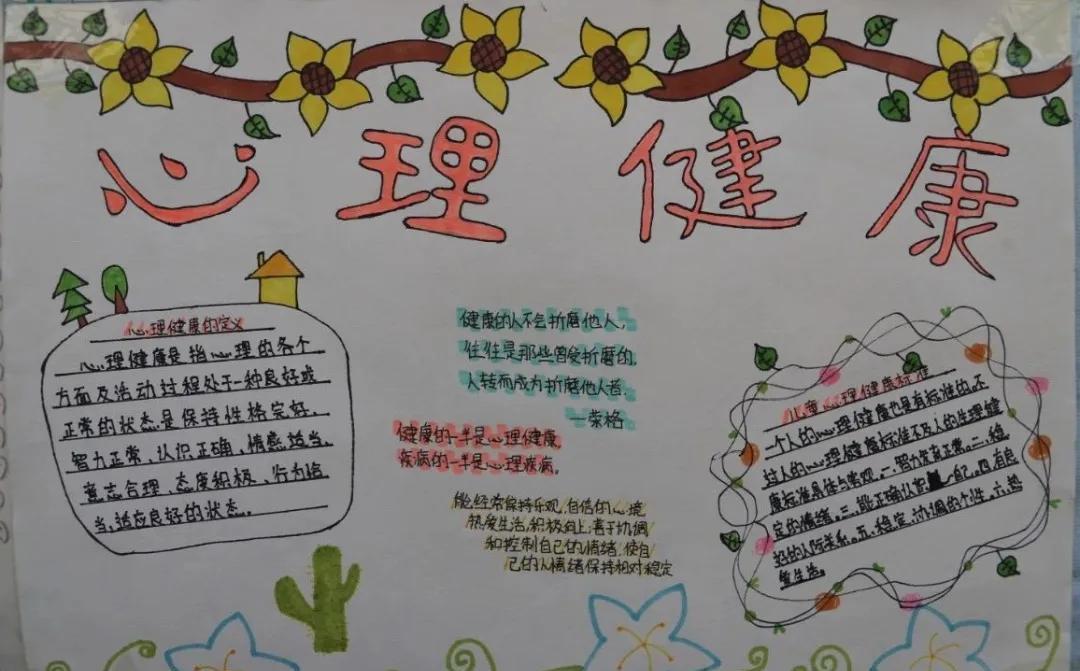 心理健康
心理健康的定义
心理健康是指心理的各个
方面及活动过程处于一种良好或
正常的状态.是保持性格完好.
智力正常、认识正确、情感适当、
意志合理、态度积极、行为恰
当、适应良好的状态。
健康的人不会折磨他人,
往往是那些曾受折磨的,
人转而成为折磨他人者.
—荣格
健康的一半是心理健康,
疾病的一半是心理疾病。
能经常保持乐观,自信的心境
热爱生活,积极向上,善于协调
和控制自己的情绪,使自
己的人情绪保持相对稳定
儿童心理健康标准
一个人的心理健康也是有标准的.不
过人的心理健康标准不及人的生理健
康标准具体与客观.一、智力发育正常.二、稳
定的情绪.三、能正确认识自己.四、有良
好的人际关系。五、稳定、协调的个性.六、热
爱生活。